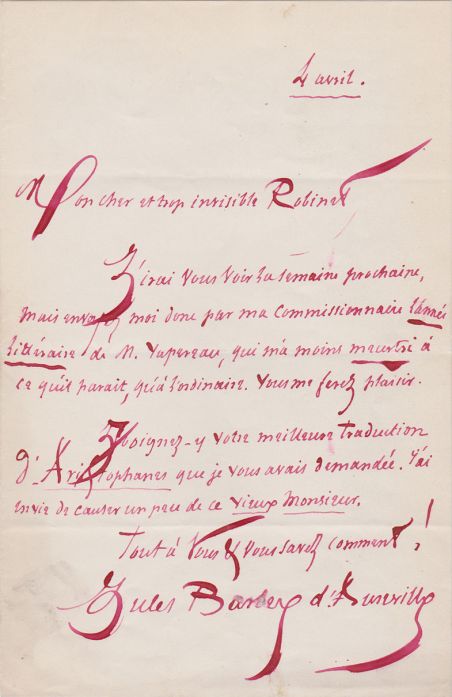 4 avril.
Mon cher et trop invisible Robinet
J'irai Vous Voir la semaine prochaine,
mais envoyez moi donc par ma Commissionnaire l'année
littéraire de M. Vapereau, qui m'a moins meurtri à
ce qu'il parait, qu'à l'ordinaire. Vous me ferez plaisir.
Joignez-y votre meilleure traduction
d'Aristophanes que je vous avais demandée. J'ai
envie de causer un peu de ce vieux Monsieur.
Tout à Vous & Vous savez comment !
Jules Barbey d'Aurevilly